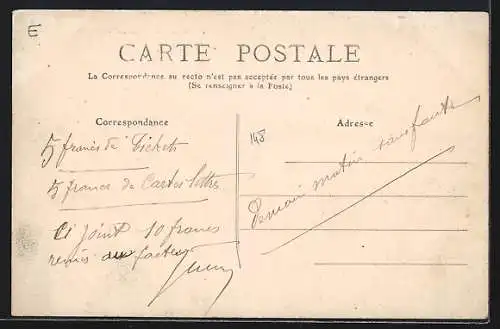 E
CARTE POSTALE
La Correspondance au recto n'est pas acceptée par tous les pays étrangers
(Se renseigner à la Poste)
Correspondance
Adresse
148
5 francs de Tickets
5 francs de Cartes lettres
Ci joint 10 francs
remis au facteur
Demain matin sans faute